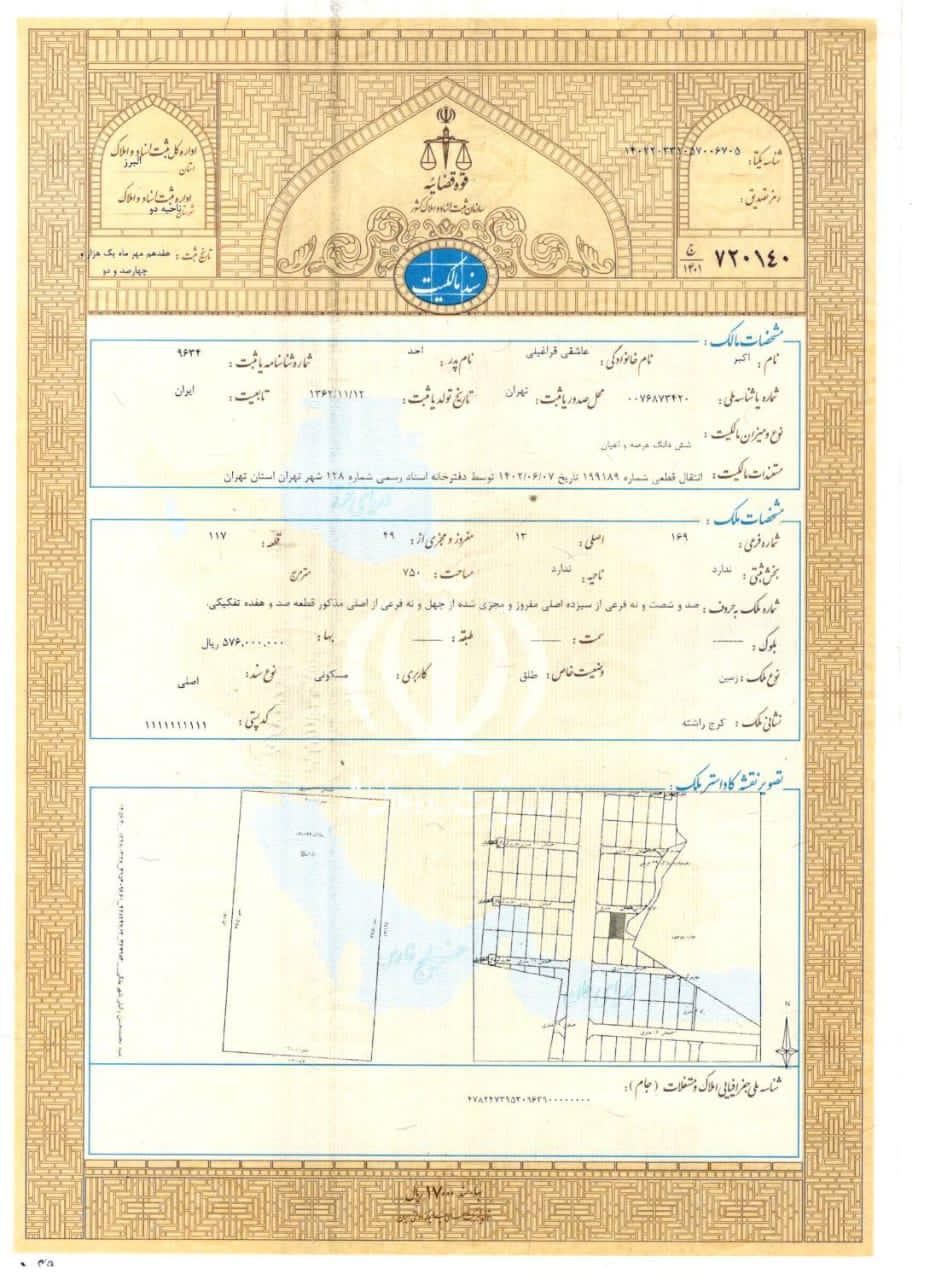 قوه قضائیه
سازمان ثبت اسناد و املاک کشور
سند مالکیت
شناسه یکتا : ۱۴۰۲۲۰۳۳۱۰۵۷۰۰۶۷۰۵
رمز تصدیق :
۷۲۰۱۴۰ ج ۱۴۰۱
اداره کل ثبت اسناد و املاک
استان البرز
اداره ثبت اسناد و املاک
شهرستان ناحیه دو
تاریخ ثبت : هفدهم مهر ماه یک هزار و
چهارصد و دو
مشخصات مالک :
نام : اکبر نام خانوادگی : عاشقی قراغیلی نام پدر : احد شماره شناسنامه یا ثبت : ۹۶۳۴
شماره یا شناسه ملی : ۰۰۷۶۸۷۳۴۲۰ محل صدور یا ثبت : تهران تاریخ تولد یا ثبت : ۱۳۶۲/۱۱/۱۲ تابعیت : ایران
نوع و میزان مالکیت : شش دانگ عرصه و اعیان
مستندات مالکیت : انتقال قطعی شماره ۱۹۹۱۸۹ تاریخ ۱۴۰۲/۰۶/۰۷ توسط دفترخانه اسناد رسمی شماره ۱۲۸ شهر تهران استان تهران
مشخصات ملک :
شماره فرعی : ۱۶۹ اصلی : ۱۳ مفروز و مجزی از : ۴۹ قطعه : ۱۱۷
بخش ثبتی : ندارد ناحیه : ندارد مساحت : ۷۵۰ مترمربع
شماره ملک به حروف : صد و شصت و نه فرعی از سیزده اصلی مفروز و مجزی شده از چهل و نه فرعی از اصلی مذکور قطعه صد و هفده تفکیکی.
بلوک : —— سمت : —— طبقه : —— بها : ۵۷۶,۰۰۰,۰۰۰ ریال
نوع ملک : زمین وضعیت خاص : طلق کاربری : مسکونی نوع سند : اصلی
نشانی ملک : کرج راشته کد پستی : ۱۱۱۱۱۱۱۱۱۱
تصویر نقشه کاداستر ملک :
دریای خزر
خلیج فارس
N
شناسه ملی جغرافیایی املاک و مستغلات (جام) :
بهاء سند ۱۷۰۰۰ ریال